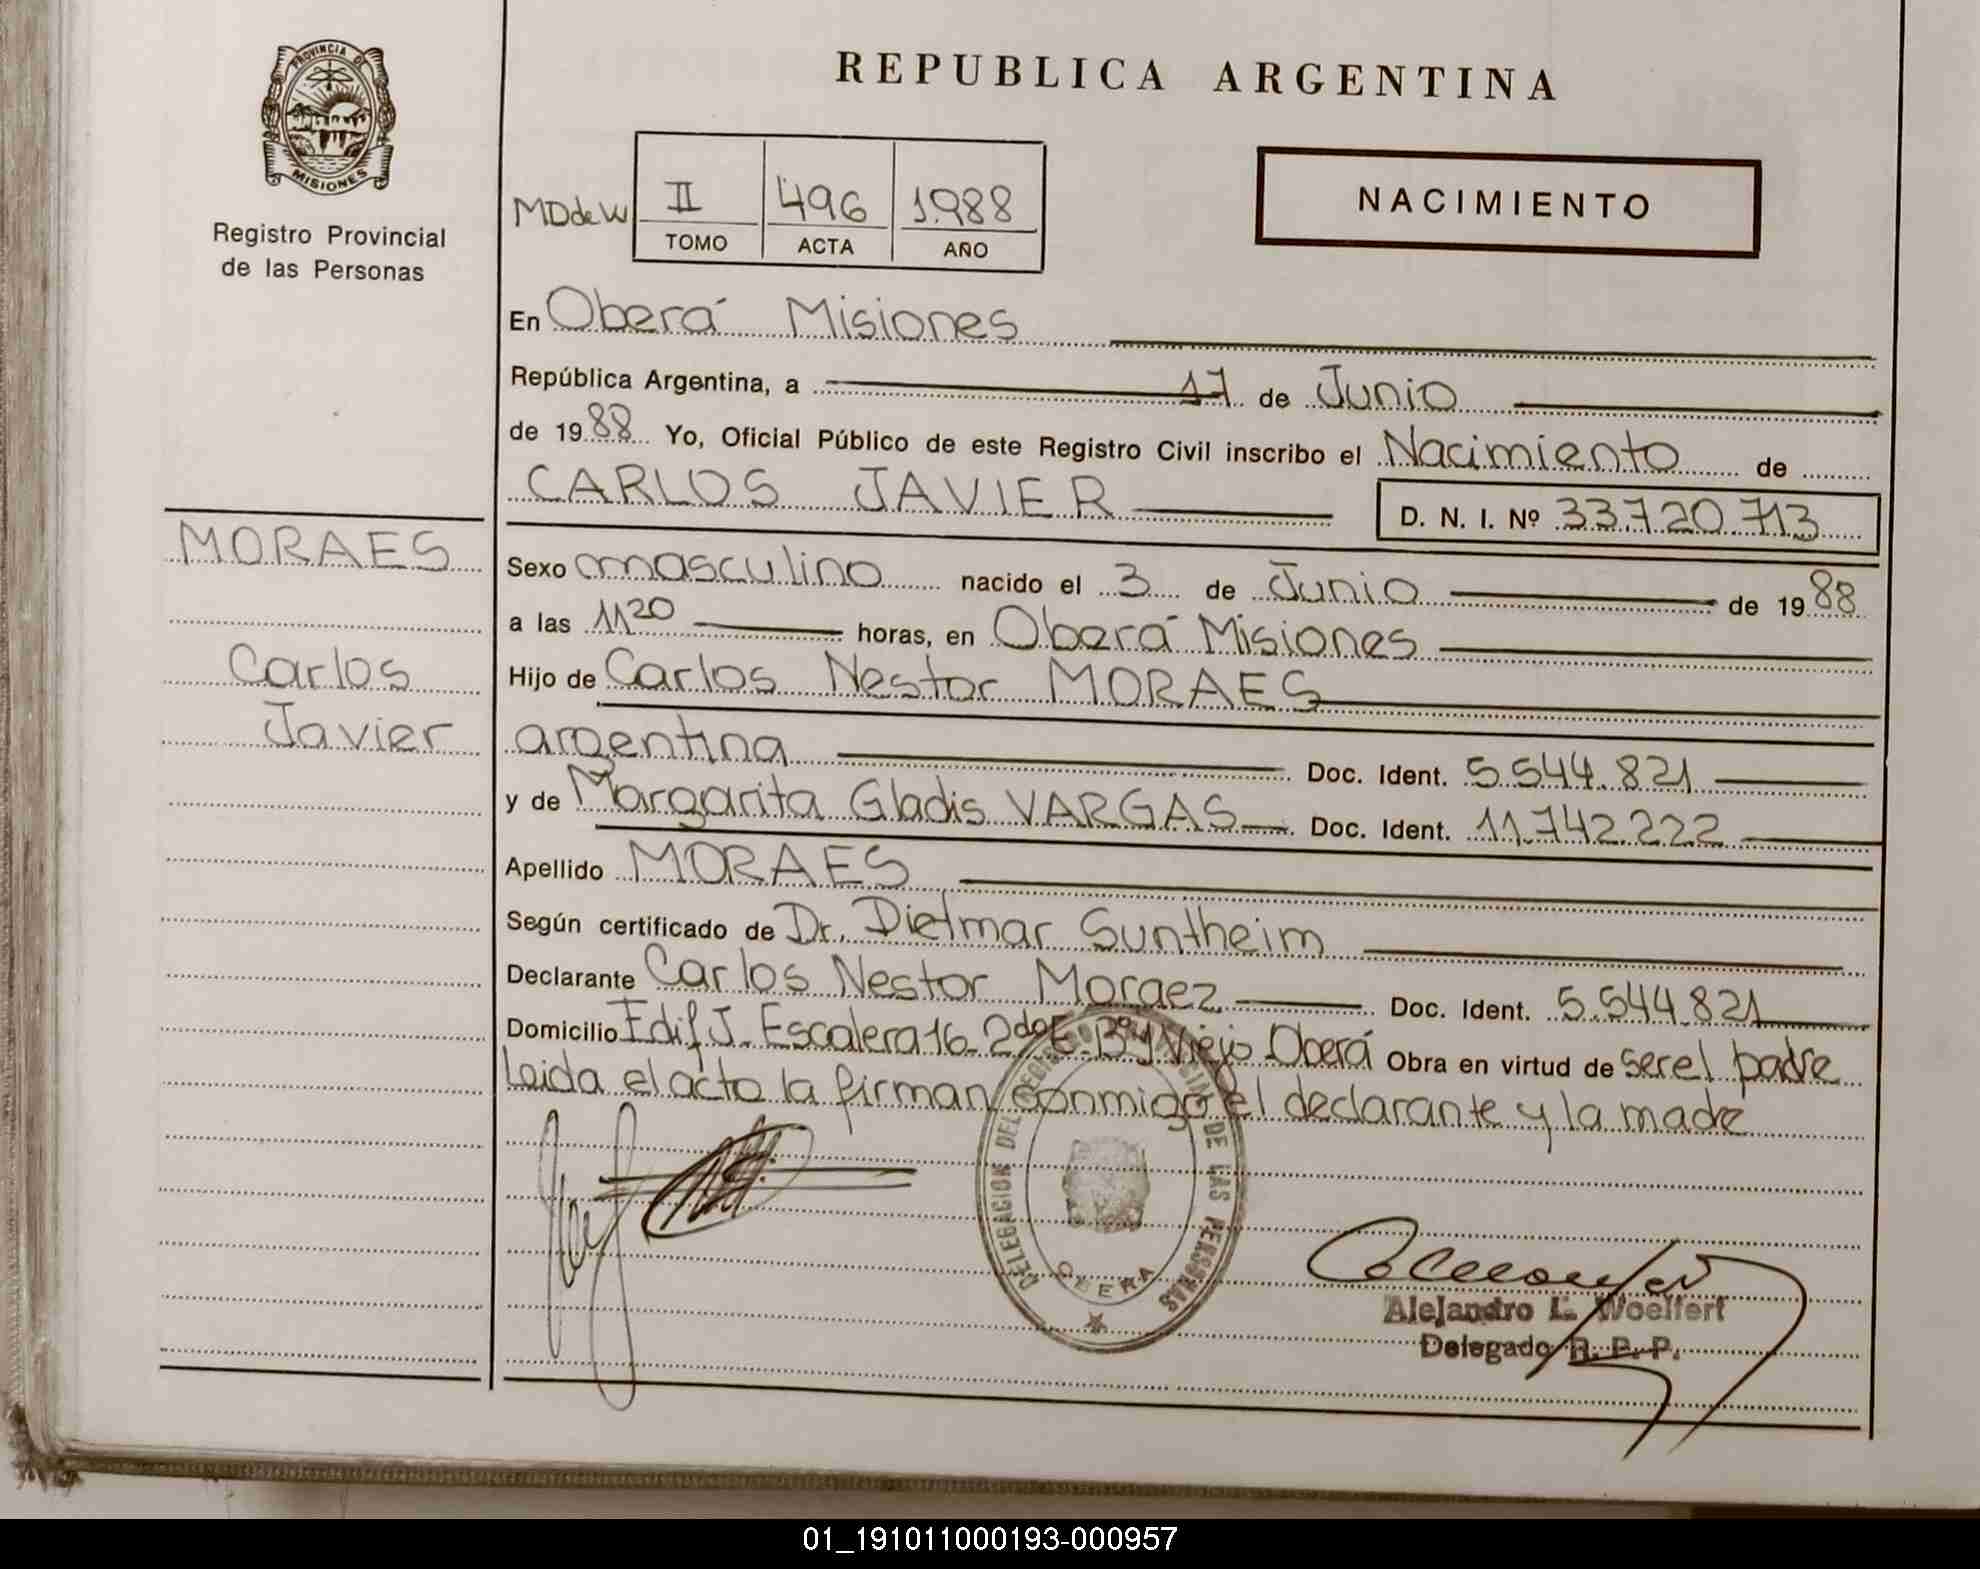 PROVINCIA DE
MISIONES
Registro Provincial
de las Personas
REPUBLICA ARGENTINA
MDdeW
II 496 1.988
TOMO ACTA AÑO
NACIMIENTO
En Oberá Misiones
República Argentina, a 17 de Junio
de 1988 Yo, Oficial Público de este Registro Civil inscribo el Nacimiento de
CARLOS JAVIER D. N. I. Nº 33.720.713
MORAES
Carlos
Javier
Sexo masculino nacido el 3 de Junio de 1988
a las 11 20 horas, en Oberá Misiones
Hijo de Carlos Nestor MORAES
argentina Doc. Ident. 5.544.821
y de Margarita Gladis VARGAS Doc. Ident. 11.742.222
Apellido MORAES
Según certificado de Dr. Dietmar Suntheim
Declarante Carlos Nestor Moraez Doc. Ident. 5.544.821
Domicilio Edif J. Escalera 16 2do E Bº Y Viejo Oberá Obra en virtud de ser el padre
Leida el acto la firman conmigo el declarante y la madre
DELEGACION DEL REGISTRO PROVINCIAL DE LAS PERSONAS
OBERA
Alejandro L. Woelfert
Delegado R. P. P.
01_191011000193-000957